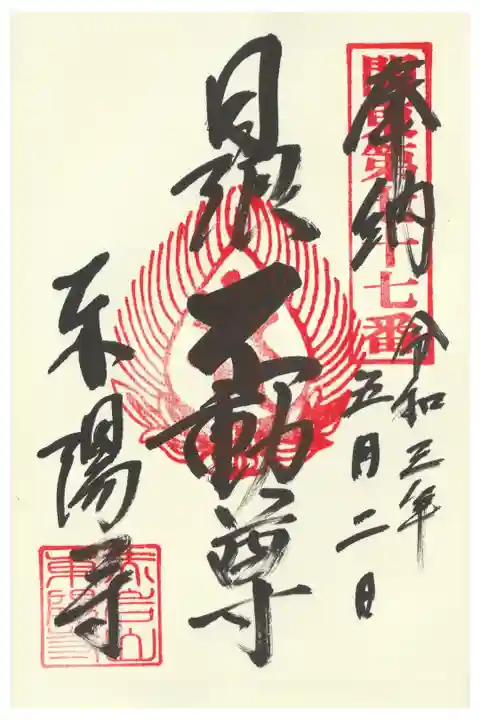 奉納
關東第十七番
令和三年
五月二日
日限不動尊
東陽寺